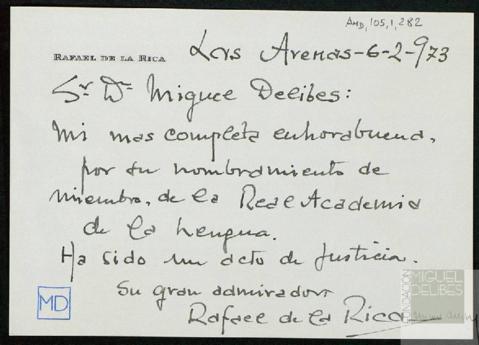 AMD, 105, 1, 282
RAFAEL DE LA RICA
Las Arenas-6-2-973
Sr. Dn Miguel Delibes:
Mi mas completa enhorabuena,
por su nombramiento de
miembro, de la Real Academia
de la Lengua.
Ha sido un acto de Justicia.
Su gran admirador
Rafael de la Rica
MD
FUNDACIÓN
MIGUEL
DELIBES